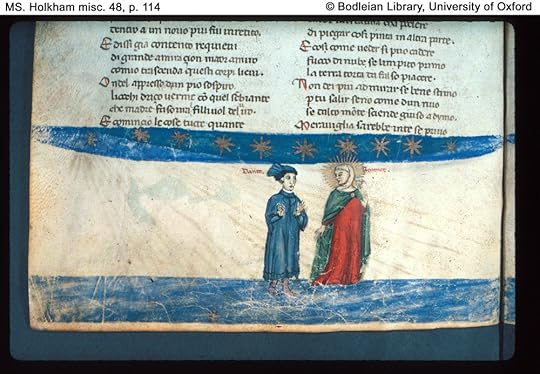 MS. Holkham misc. 48, p. 114
© Bodleian Library, University of Oxford
a un nouo piu fui inretito.
E dissi gia contento requieui
di grande amiration ma or amiro
comio trascenda questi corpi lieui.
Ondel appresso dun pio sospiro
li occhi driço uerme cō quel sebiante
che madre fa soura filliuol
E comincio le cose tucte quante
podere
di piegar cosi pinta in altra parte.
E cosi come ueder si puo cadere
fuoco di nube se limpeto primo
la terra torta da falso piacere.
Non dei piu ad mirar se bene stimo
tu salir seno come dun riuo
se dalto mōte scende giuso
Merauiglia sarebbe inte se priuo
Dante.